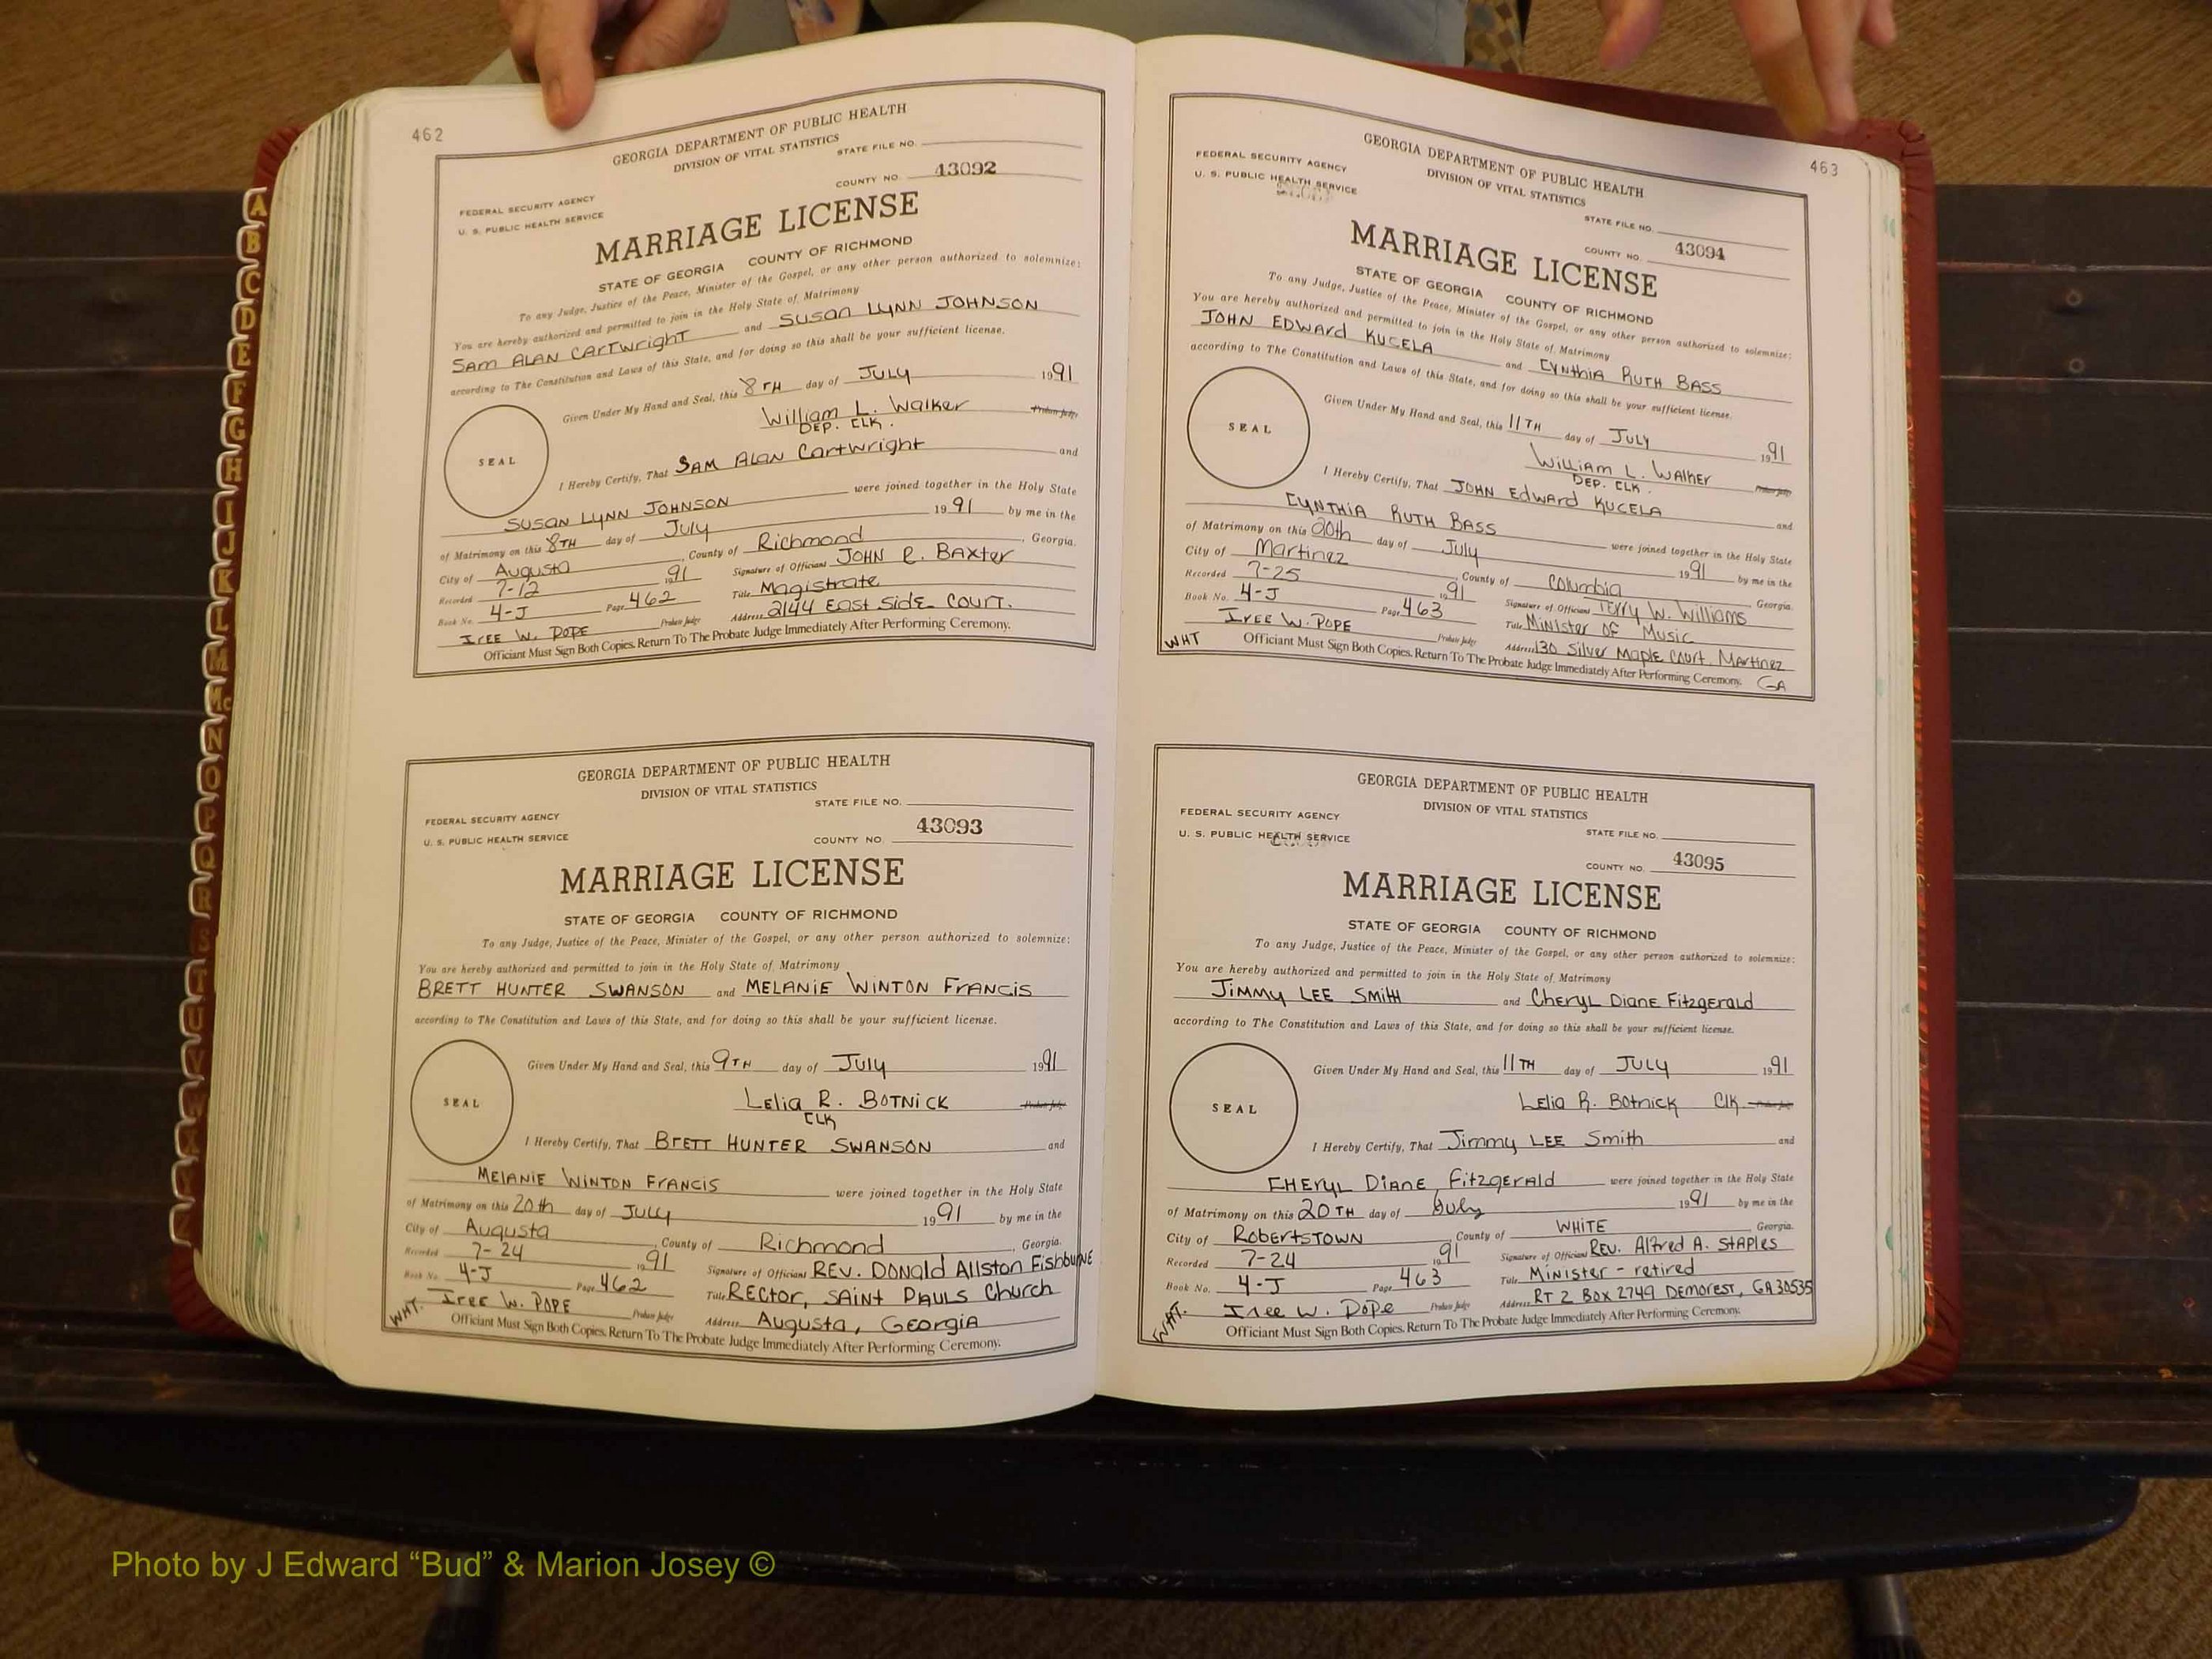 462
GEORGIA DEPARTMENT OF PUBLIC HEALTH
DIVISION OF VITAL STATISTICS
STATE FILE NO.
FEDERAL SECURITY AGENCY
U. S. PUBLIC HEALTH SERVICE
COUNTY NO. 43092
MARRIAGE LICENSE
STATE OF GEORGIA COUNTY OF RICHMOND
To any Judge, Justice of the Peace, Minister of the Gospel, or any other person authorized to solemnize:
You are hereby authorized and permitted to join in the Holy State of Matrimony
Sam ALAN CARTWRIGHT and SUSAN LYNN JOHNSON
according to The Constitution and Laws of this State, and for doing so this shall be your sufficient license.
Given Under My Hand and Seal, this 8TH day of JULY 1991
William L. Walker Probate Judge
DEP. CLK.
SEAL
I Hereby Certify, That SAM ALAN Cartwright and
SUSAN LYNN JOHNSON were joined together in the Holy State
of Matrimony on this 8TH day of July 1991 by me in the
City of Augusta, County of Richmond, Georgia.
Recorded 7-12 1991 Signature of Officiant JOHN R. BAXTER
Book No. 4-J Page 462 Title Magistrate
IREE W. POPE Probate Judge Address 2144 East Side Court.
Officiant Must Sign Both Copies. Return To The Probate Judge Immediately After Performing Ceremony.
GEORGIA DEPARTMENT OF PUBLIC HEALTH
DIVISION OF VITAL STATISTICS
STATE FILE NO.
FEDERAL SECURITY AGENCY
U. S. PUBLIC HEALTH SERVICE
COUNTY NO. 43093
MARRIAGE LICENSE
STATE OF GEORGIA COUNTY OF RICHMOND
To any Judge, Justice of the Peace, Minister of the Gospel, or any other person authorized to solemnize:
You are hereby authorized and permitted to join in the Holy State of Matrimony
BRETT HUNTER SWANSON and MELANIE WINTON FRANCIS
according to The Constitution and Laws of this State, and for doing so this shall be your sufficient license.
Given Under My Hand and Seal, this 9TH day of JULY 1991
LELIA R. BOTNICK Probate Judge
CLK
SEAL
I Hereby Certify, That BRETT HUNTER SWANSON and
MELANIE WINTON FRANCIS were joined together in the Holy State
of Matrimony on this 20th day of JULY 1991 by me in the
City of Augusta, County of Richmond, Georgia.
Recorded 7-24 1991 Signature of Officiant REV. DONALD Allston Fishburne
Book No. 4-J Page 462 Title RECTOR, SAINT PAULS Church
WHT. IREE W. POPE Probate Judge Address Augusta, GEORGIA
Officiant Must Sign Both Copies. Return To The Probate Judge Immediately After Performing Ceremony.
463
GEORGIA DEPARTMENT OF PUBLIC HEALTH
DIVISION OF VITAL STATISTICS
FEDERAL SECURITY AGENCY
U. S. PUBLIC HEALTH SERVICE
STATE FILE NO.
COUNTY NO. 43094
MARRIAGE LICENSE
STATE OF GEORGIA COUNTY OF RICHMOND
To any Judge, Justice of the Peace, Minister of the Gospel, or any other person authorized to solemnize:
You are hereby authorized and permitted to join in the Holy State of Matrimony
JOHN EDWARD KUCELA and CYNTHIA RUTH BASS
according to The Constitution and Laws of this State, and for doing so this shall be your sufficient license.
Given Under My Hand and Seal, this 11TH day of JULY 1991
WILLIAM L. WALKER Probate Judge
DEP. CLK.
SEAL
I Hereby Certify, That JOHN EDWARD KUCELA and
CYNTHIA RUTH BASS were joined together in the Holy State
of Matrimony on this 20th day of July 1991 by me in the
City of Martinez, County of Columbia Georgia.
Recorded 7-25 1991 Signature of Officiant TERRY W. Williams
Book No. 4-J Page 463 Title Minister OF Music
IREE W. POPE Probate Judge Address 130 Silver Maple Court, Martinez GA
WHT Officiant Must Sign Both Copies. Return To The Probate Judge Immediately After Performing Ceremony.
GEORGIA DEPARTMENT OF PUBLIC HEALTH
DIVISION OF VITAL STATISTICS
FEDERAL SECURITY AGENCY
U. S. PUBLIC HEALTH SERVICE
STATE FILE NO.
COUNTY NO. 43095
MARRIAGE LICENSE
STATE OF GEORGIA COUNTY OF RICHMOND
To any Judge, Justice of the Peace, Minister of the Gospel, or any other person authorized to solemnize:
You are hereby authorized and permitted to join in the Holy State of Matrimony
JIMMY LEE SMITH and CHERYL DIANE FITZGERALD
according to The Constitution and Laws of this State, and for doing so this shall be your sufficient license.
Given Under My Hand and Seal, this 11TH day of JULY 1991
LELIA R. BOTNICK Clk Probate Judge
SEAL
I Hereby Certify, That Jimmy LEE Smith and
CHERYL DIANE FITZGERALD were joined together in the Holy State
of Matrimony on this 20TH day of July 1991 by me in the
City of ROBERTSTOWN, County of WHITE Georgia.
Recorded 7-24 1991 Signature of Officiant REV. Alfred A. STAPLES
Book No. 4-J Page 463 Title Minister - retired
WHT. IREE W. POPE Probate Judge Address RT 2 BOX 2749 DEMOREST, GA 30535
Officiant Must Sign Both Copies. Return To The Probate Judge Immediately After Performing Ceremony.
A
B
C
D
E
F
G
H
I
J
K
L
M
Mc
N
O
P
Q
R
S
T
U
V
W
Photo by J Edward “Bud” & Marion Josey ©